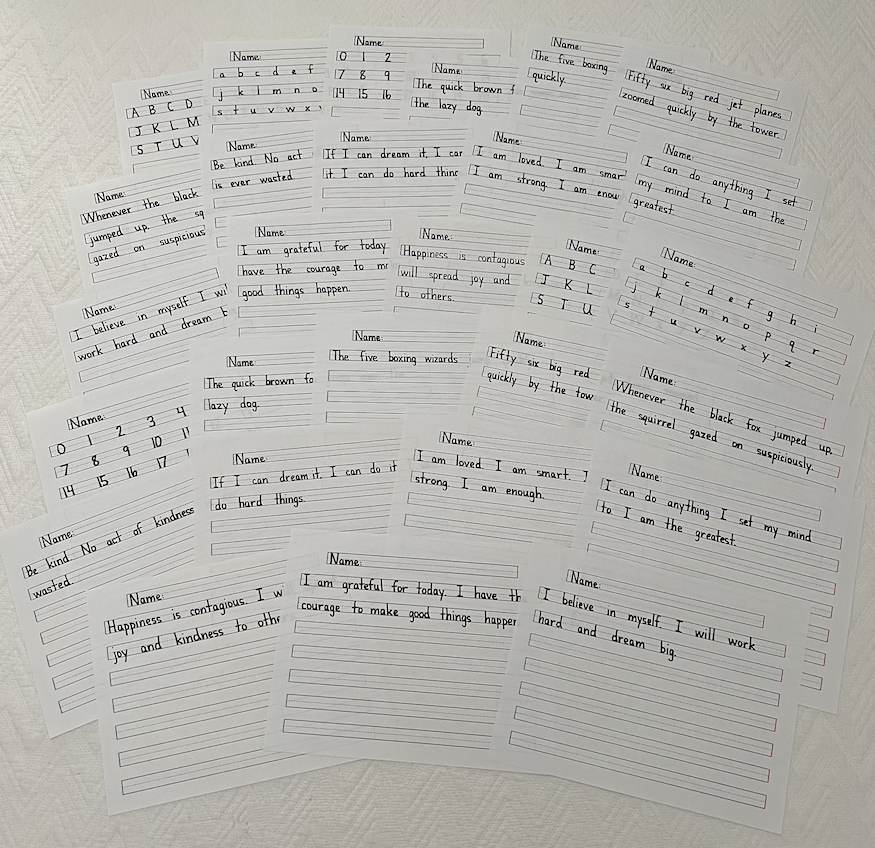 Name:
A B C D
J K L M
S T U V
Name:
a b c d e f
j k l m n o
s t u v w x
Name:
0 1 2
7 8 9
14 15 16
Name:
The quick brown f
the lazy dog.
Name:
The five boxing
quickly.
Name:
Fifty six big red jet planes
zoomed quickly by the tower.
Name:
Whenever the black
jumped up, the sq
gazed on suspicious
Name:
Be kind. No act
is ever wasted.
Name:
If I can dream it, I can
it. I can do hard thing
Name:
I am loved. I am smar
I am strong. I am enou
Name:
I can do anything I set
my mind to. I am the
greatest.
Name:
I believe in myself. I wil
work hard and dream b
Name:
I am grateful for today
have the courage to m
good things happen.
Name:
Happiness is contagious
will spread joy and
to others.
Name:
A B C
J K L
S T U
Name:
a b c d e f g h i
j k l m n o p q r
s t u v w x y z
Name:
0 1 2 3 4
7 8 9 10 11
14 15 16 17 1
Name:
The quick brown fo
lazy dog.
Name:
The five boxing wizards
Name:
Fifty six big red
quickly by the tow
Name:
Whenever the black fox jumped up,
the squirrel gazed on suspiciously.
Name:
Be kind. No act of kindness
wasted.
Name:
If I can dream it, I can do it
do hard things.
Name:
I am loved. I am smart. I
strong. I am enough.
Name:
I can do anything I set my mind
to. I am the greatest.
Name:
Happiness is contagious. I w
joy and kindness to othe
Name:
I am grateful for today. I have th
courage to make good things happen
Name:
I believe in myself. I will work
hard and dream big.